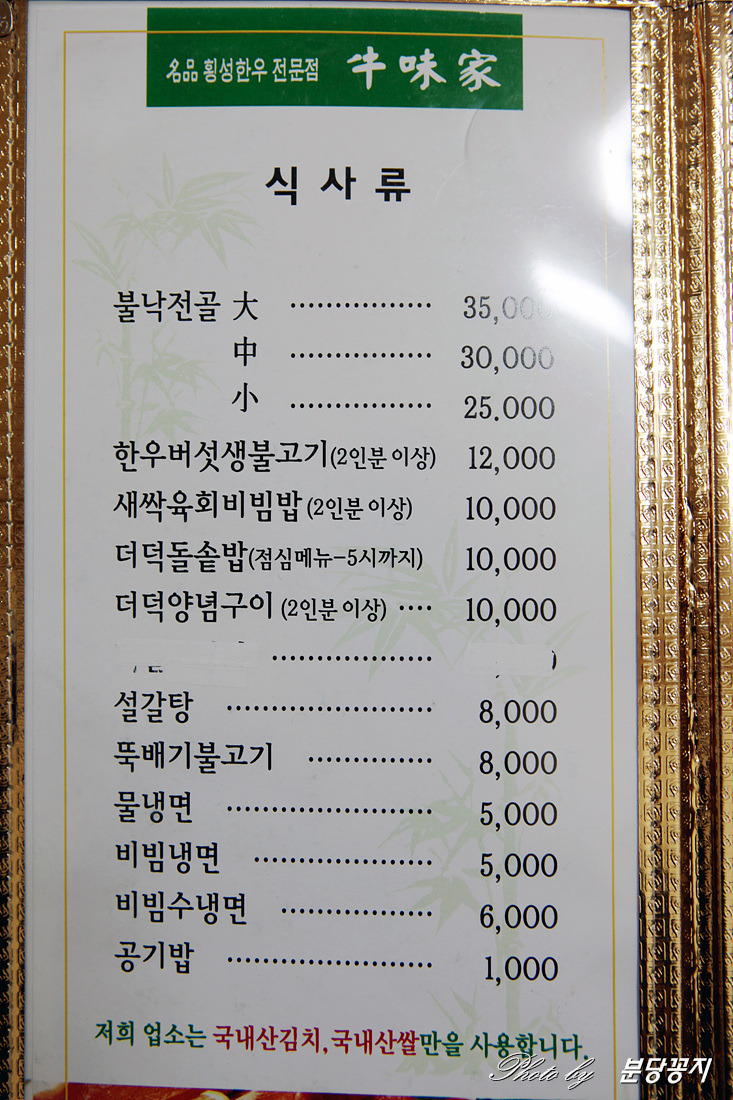 名品 횡성한우 전문점 牛味家
식사류
불낙전골 大 ················ 35,000
中 ················ 30,000
小 ················ 25.000
한우버섯생불고기(2인분 이상) 12,000
새싹육회비빔밥 (2인분 이상) 10,000
더덕돌솥밥(점심메뉴-5시까지) 10,000
더덕양념구이 (2인분 이상) ···· 10,000
설갈탕 ······················· 8,000
뚝배기불고기 ·············· 8,000
물냉면 ······················· 5,000
비빔냉면 ···················· 5,000
비빔수냉면 ················· 6,000
공기밥 ······················· 1,000
저희 업소는 국내산김치,국내산쌀만을 사용합니다.
Photo by 분당꽁지